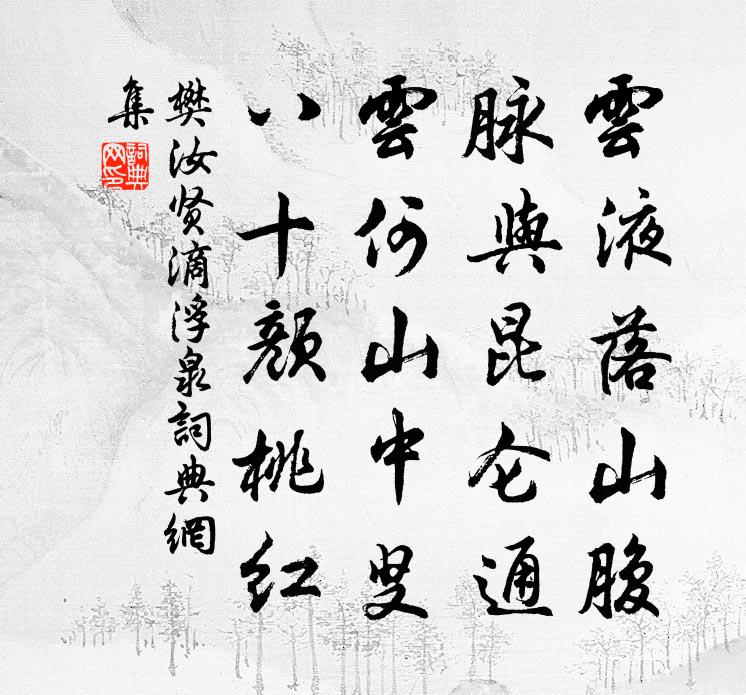 雲液落山腹
脉與昆仑通
雲何山中叟
八十颜桃红
樊汝贤滴浮泉詞典網
集
詞典網印